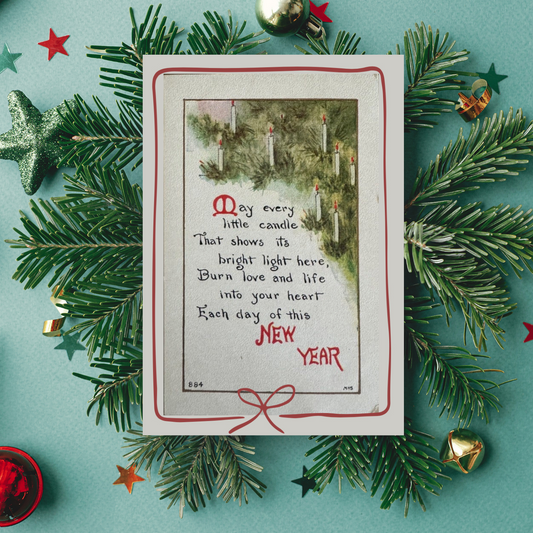 May every
little candle
That shows its
bright light here,
Burn love and life
into your heart
Each day of this
NEW
YEAR
884